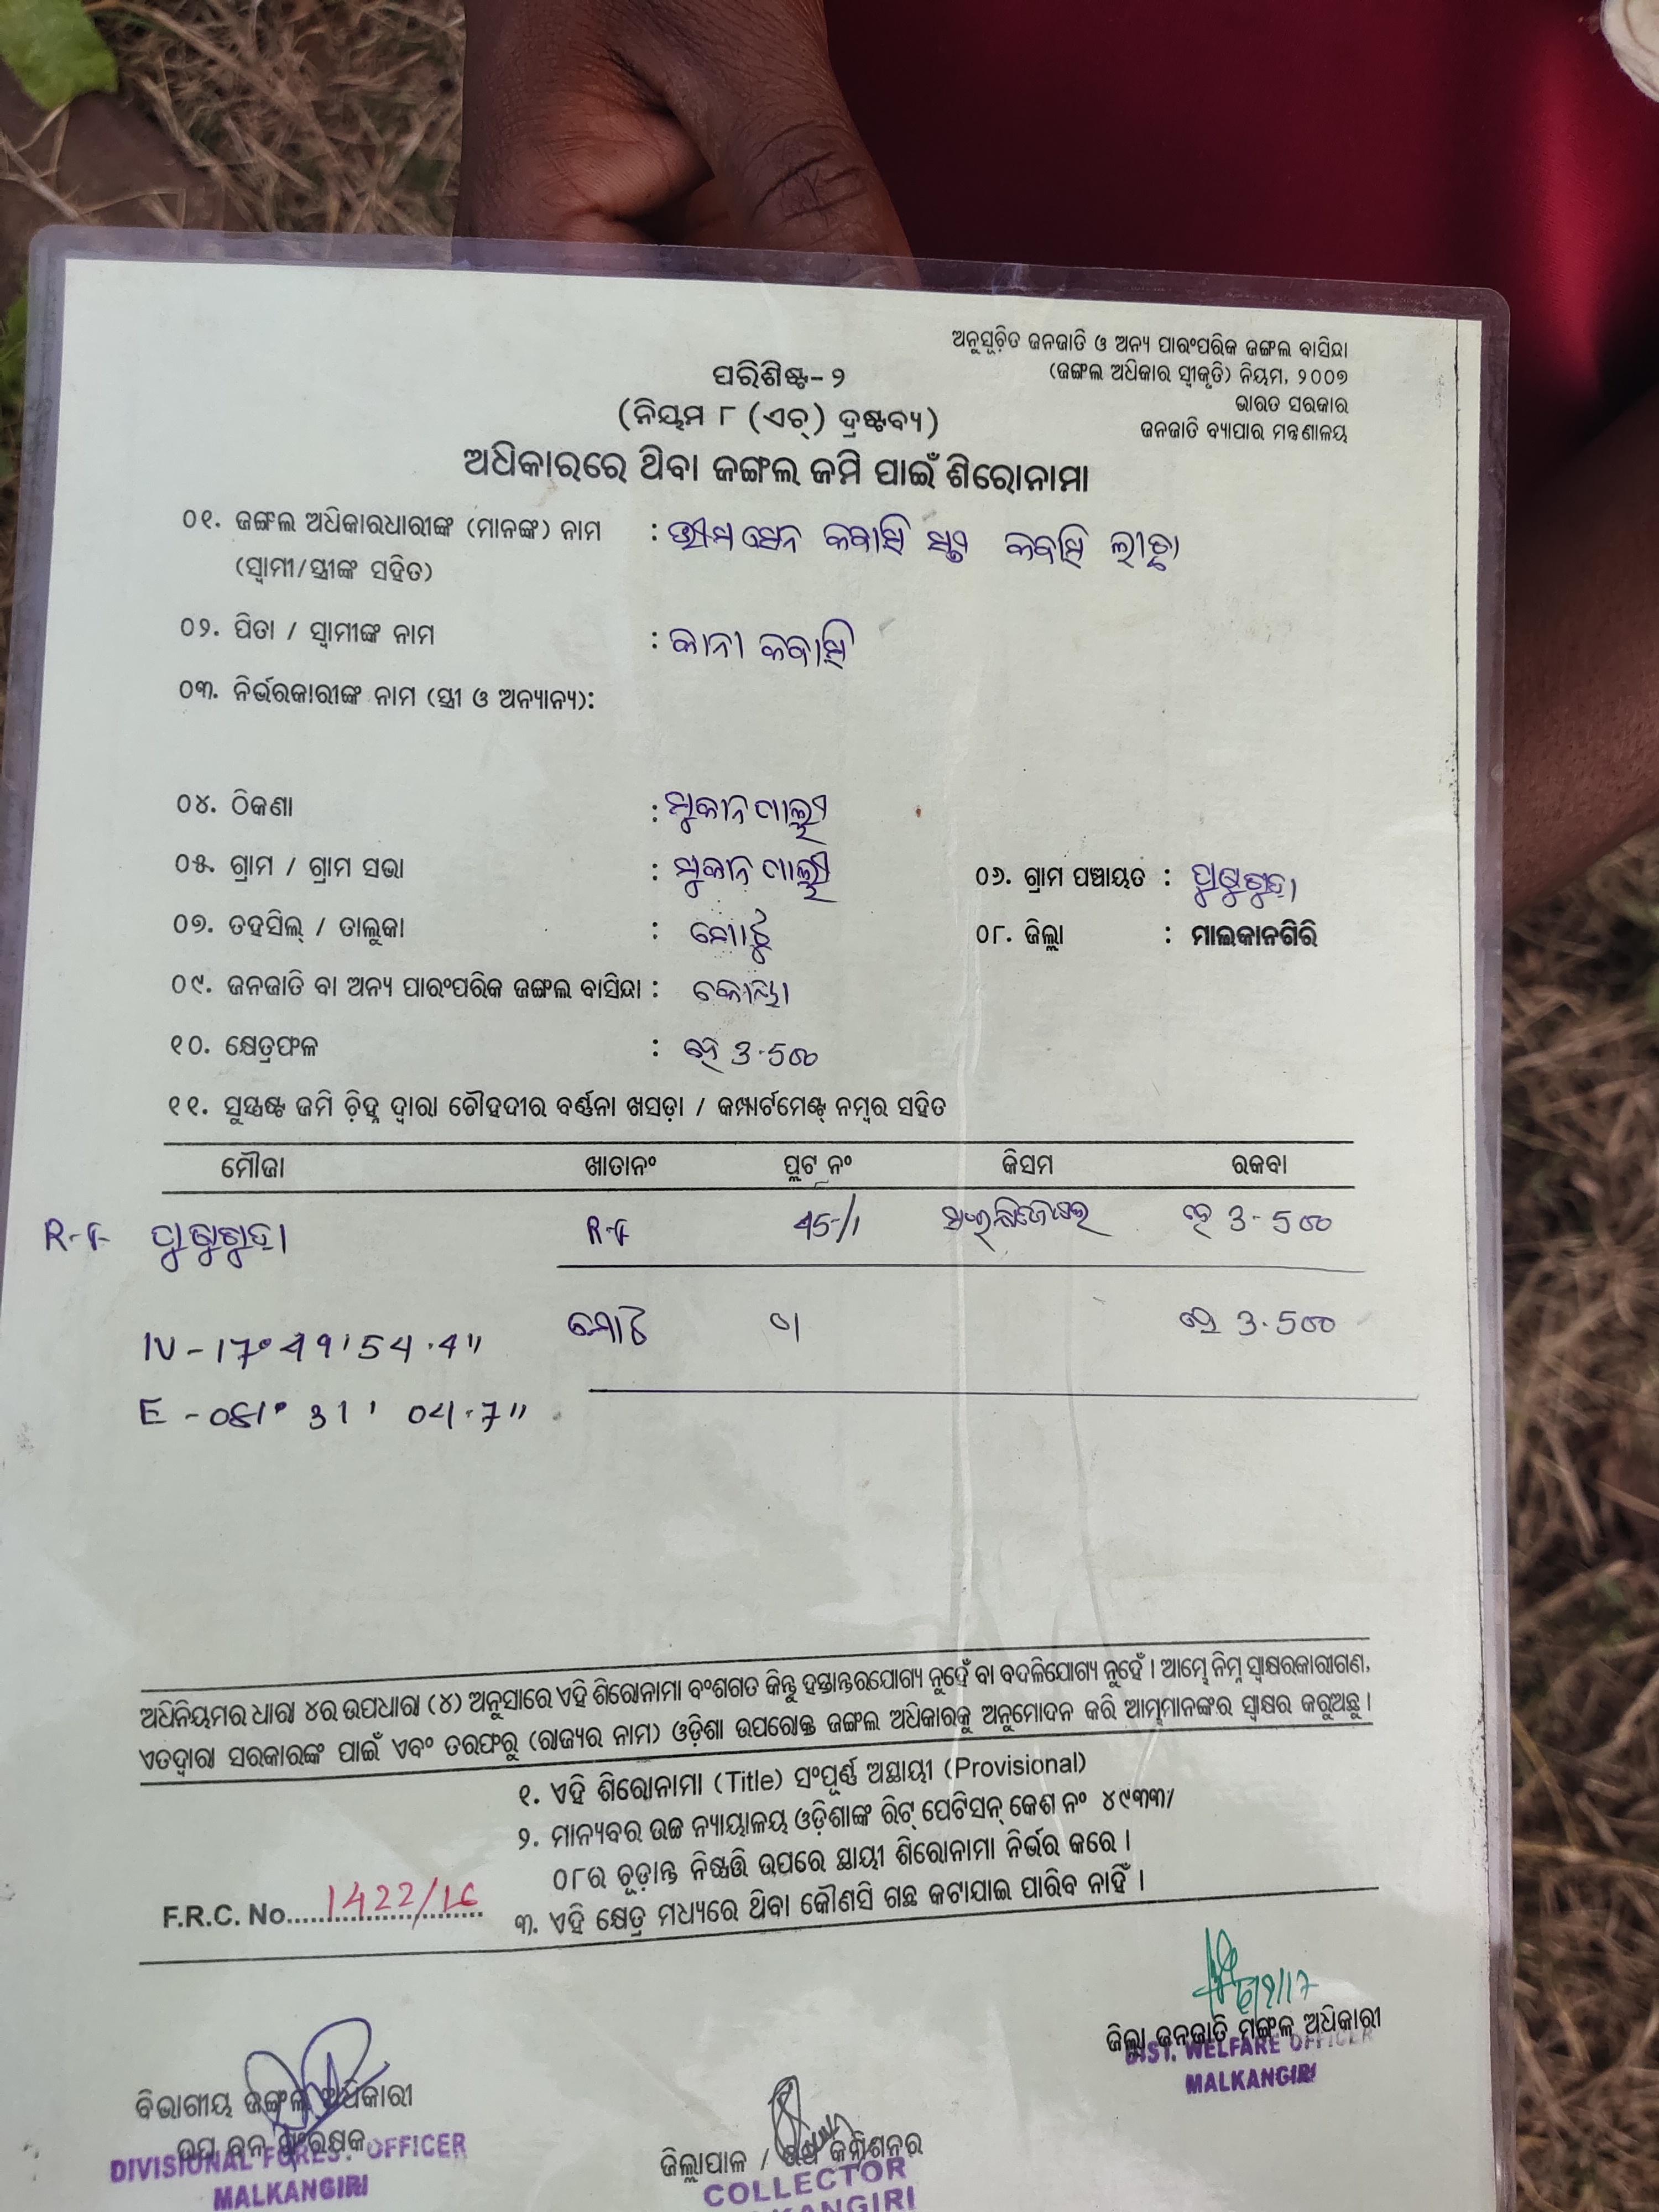 ଅନୁସୂଚିତ ଜନଜାତି ଓ ଅନ୍ୟ ପାରଂପରିକ ଜଙ୍ଗଲ ବାସିନ୍ଦା
(ଜଙ୍ଗଲ ଅଧିକାର ସ୍ୱୀକୃତି) ନିୟମ, ୨୦୦୭
ଭାରତ ସରକାର
ଜନଜାତି ବ୍ୟାପାର ମନ୍ତ୍ରଣାଳୟ
ପରିଶିଷ୍ଟ-୨
(ନିୟମ ୮ (ଏଚ୍) ଦ୍ରଷ୍ଟବ୍ୟ)
ଅଧିକାରରେ ଥିବା ଜଙ୍ଗଲ ଜମି ପାଇଁ ଶିରୋନାମା
୦୧. ଜଙ୍ଗଲ ଅଧିକାରଧାରୀଙ୍କ (ମାନଙ୍କ) ନାମ : କବାସି କବାସି
(ସ୍ୱାମୀ/ସ୍ତ୍ରୀଙ୍କ ସହିତ)
୦୨. ପିତା / ସ୍ୱାମୀଙ୍କ ନାମ : କାନା କବାସି
୦୩. ନିର୍ଭରକାରୀଙ୍କ ନାମ (ସ୍ତ୍ରୀ ଓ ଅନ୍ୟାନ୍ୟ):
୦୪. ଠିକଣା :
୦୫. ଗ୍ରାମ / ଗ୍ରାମ ସଭା : ୦୬. ଗ୍ରାମ ପଞ୍ଚାୟତ :
୦୭. ତହସିଲ୍ / ତାଲୁକା : ମୋଟୁ ୦୮. ଜିଲ୍ଲା : ମାଲକାନଗିରି
୦୯. ଜନଜାତି ବା ଅନ୍ୟ ପାରଂପରିକ ଜଙ୍ଗଲ ବାସିନ୍ଦା : କୋୟା
୧୦. କ୍ଷେତ୍ରଫଳ : ହେ 3.500
୧୧. ସୁସ୍ପଷ୍ଟ ଜମି ଚିହ୍ନ ଦ୍ୱାରା ଚୌହଦୀର ବର୍ଣ୍ଣନା ଖସଡ଼ା / କମ୍ପାର୍ଟମେଣ୍ଟ୍ ନମ୍ବର ସହିତ
ମୌଜା ଖାତାନଂ ପ୍ଲଟ ନଂ କିସମ ରକବା
R.F R.F 45/1 ହେ 3.500
N - 17° 49' 54.4" ମୋଟ ହେ 3.500
E - 081° 31' 04.7"
ଅଧିନିୟମର ଧାରା ୪ର ଉପଧାରା (୪) ଅନୁସାରେ ଏହି ଶିରୋନାମା ବଂଶଗତ କିନ୍ତୁ ହସ୍ତାନ୍ତରଯୋଗ୍ୟ ନୁହେଁ ବା ବଦଳିଯୋଗ୍ୟ ନୁହେଁ । ଆମ୍ଭେ ନିମ୍ନ ସ୍ୱାକ୍ଷରକାରୀଗଣ,
ଏତଦ୍ଦ୍ୱାରା ସରକାରଙ୍କ ପାଇଁ ଏବଂ ତରଫରୁ (ରାଜ୍ୟର ନାମ) ଓଡ଼ିଶା ଉପରୋକ୍ତ ଜଙ୍ଗଲ ଅଧିକାରକୁ ଅନୁମୋଦନ କରି ଆମ୍ଭମାନଙ୍କର ସ୍ୱାକ୍ଷର କରୁଅଛୁ ।
୧. ଏହି ଶିରୋନାମା (Title) ସଂପୂର୍ଣ୍ଣ ଅସ୍ଥାୟୀ (Provisional)
୨. ମାନ୍ୟବର ଉଚ୍ଚ ନ୍ୟାୟାଳୟ ଓଡ଼ିଶାଙ୍କ ରିଟ୍ ପେଟିସନ୍ କେଶ ନଂ ୪୯୩୩/
୦୮ର ଚୂଡ଼ାନ୍ତ ନିଷ୍ପତ୍ତି ଉପରେ ସ୍ଥାୟୀ ଶିରୋନାମା ନିର୍ଭର କରେ ।
୩. ଏହି କ୍ଷେତ୍ର ମଧ୍ୟରେ ଥିବା କୌଣସି ଗଛ କଟାଯାଇ ପାରିବ ନାହିଁ ।
F.R.C. No. 1422/16
ଜିଲ୍ଲା ଜନଜାତି ମଙ୍ଗଳ ଅଧିକାରୀ
DIST. WELFARE OFFICER
MALKANGIRI
ବିଭାଗୀୟ ଜଙ୍ଗଲ ଅଧିକାରୀ
ଉପ ବନ ସଂରକ୍ଷକ
DIVISIONAL FOREST OFFICER
MALKANGIRI
ଜିଲ୍ଲାପାଳ / ଉପ କମିଶନର
COLLECTOR
MALKANGIRI